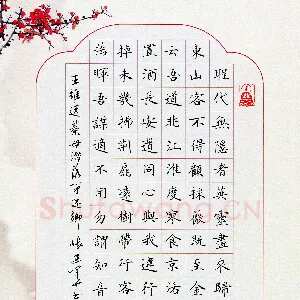 聖代無隱者英靈盡來歸
東山客不得顧採薇既至金
云吾道非江淮度寒食京洛
置酒長安道同心與我違行
棹未幾拂荊扉遠樹帶行客
落暉吾謀適不用勿謂知音
王維送綦毋潛落第還鄉